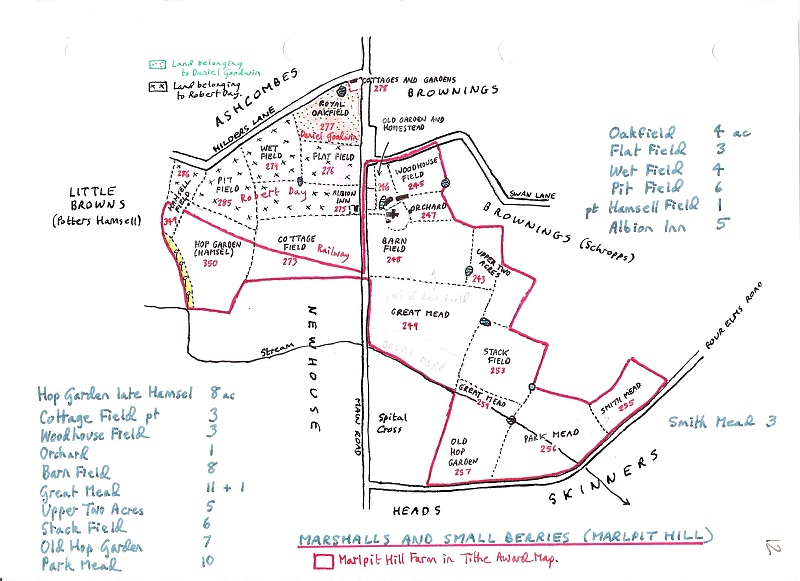 Land belonging
to Daniel Goodwin
Land belonging
to Robert Day.
ASHCOMBES
HILDERS LANE
COTTAGES AND GARDENS
278
BROWNINGS
ROYAL
OAKFIELD
277
Daniel Goodwin
OLD GARDEN AND
HOMESTEAD
246
WET
FIELD
274
FLAT FIELD
276
WOODHOUSE
FIELD
245
SWAN LANE
286
HAMSELL
FIELD
PIT
FIELD
285
Robert Day
ALBION
INN
275
ORCHARD
247
BROWNINGS (Schropps)
LITTLE
BROWNS
(Potters Hamsell)
349
HOP GARDEN
(HAMSEL)
350
COTTAGE
FIELD
273
Railway
BARN
FIELD
248
UPPER TWO
ACRES
243
part of Barn Field
GREAT MEAD
249
GREAT MEAD
Stream
NEWHOUSE
MAIN ROAD
STACK
FIELD
253
GREAT MEAD
254
Spital
Cross
OLD
HOP
GARDEN
257
PARK MEAD
256
SMITH MEAD
255
FOUR ELMS ROAD
SKINNERS
HEADS
Oakfield 4 ac
Flat Field 3
Wet Field 4
Pit Field 6
pt Hamsell Field 1
Albion Inn 5
Smith Mead 3
Hop Garden late Hamsel 8 ac
Cottage Field pt 3
Woodhouse Field 3
Orchard 1
Barn Field 8
Great Mead 11 + 1
Upper Two Acres 5
Stack Field 6
Old Hop Garden 7
Park Mead 10
MARSHALLS AND SMALL BERRIES (MARLPIT HILL)
Marlpit Hill Farm in Tithe Award Map.
12